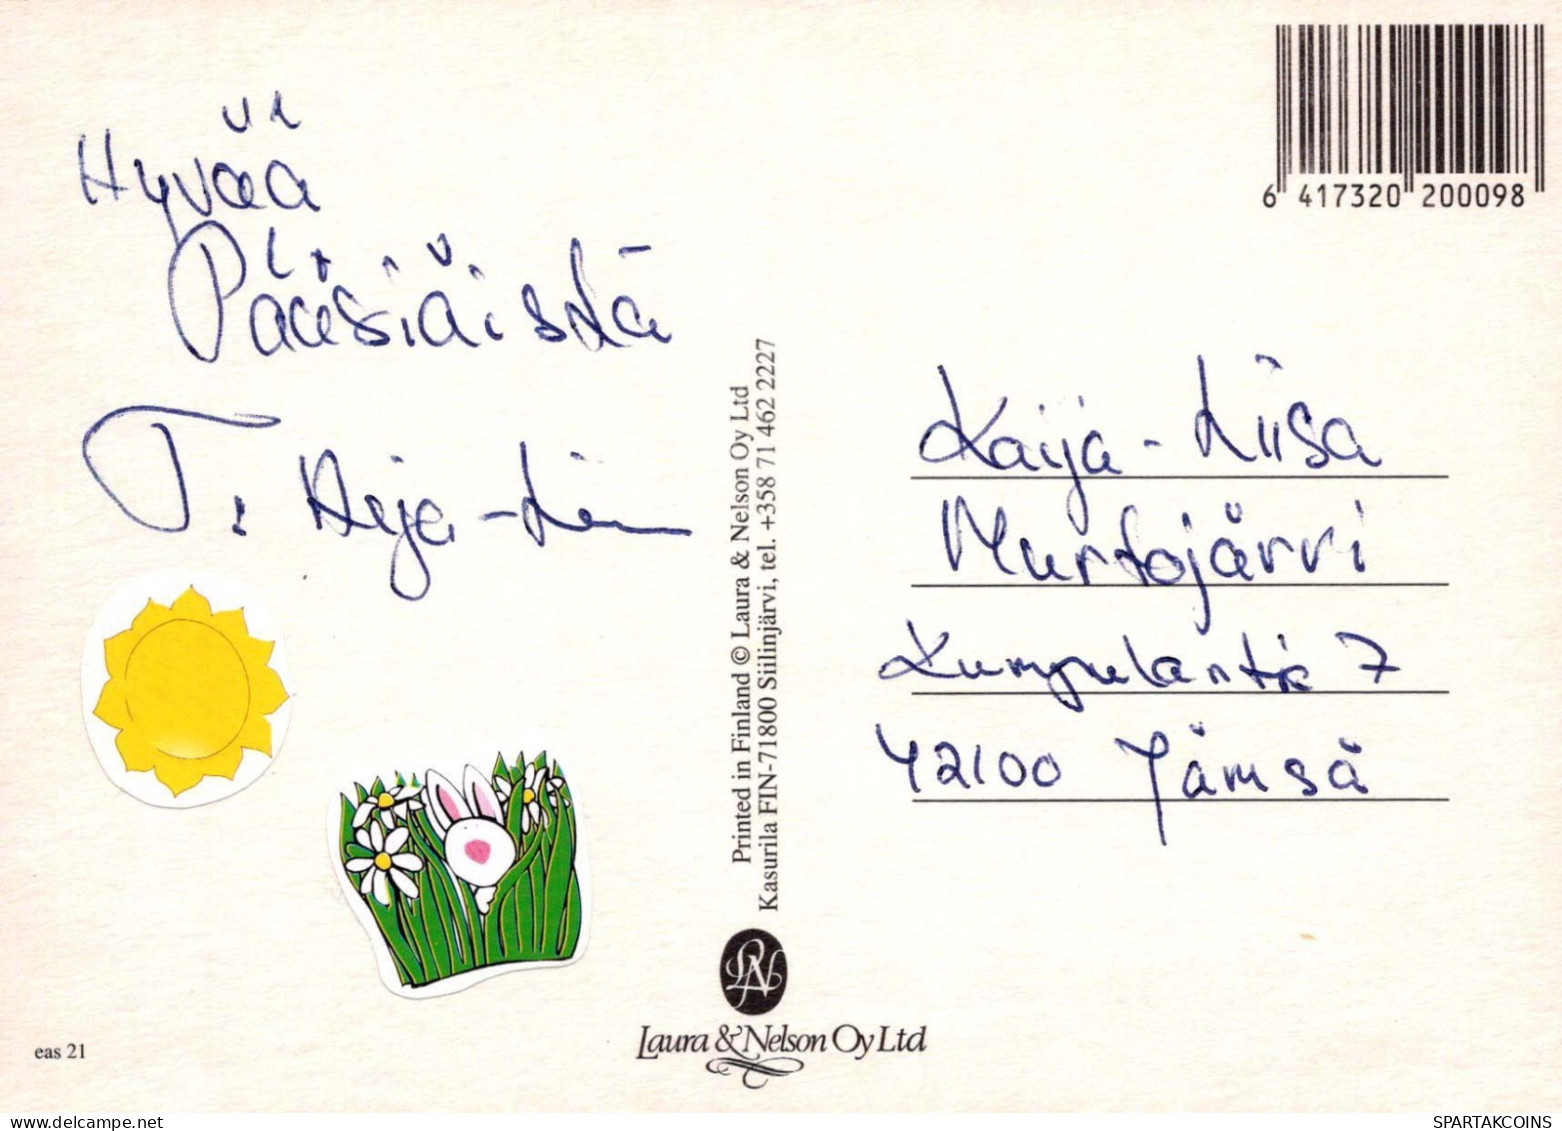 Hyvää
Pääsiäistä
T: Aija-
Kaija-Liisa
Murtojärvi
Kumpulantie 7
42100 Jämsä
6 417320 200098
Printed in Finland © Laura & Nelson Oy Ltd
Kasurila FIN-71800 Siilinjärvi, tel. +358 71 462 2227
LN
Laura & Nelson Oy Ltd
eas 21
SPARTAKCOINS